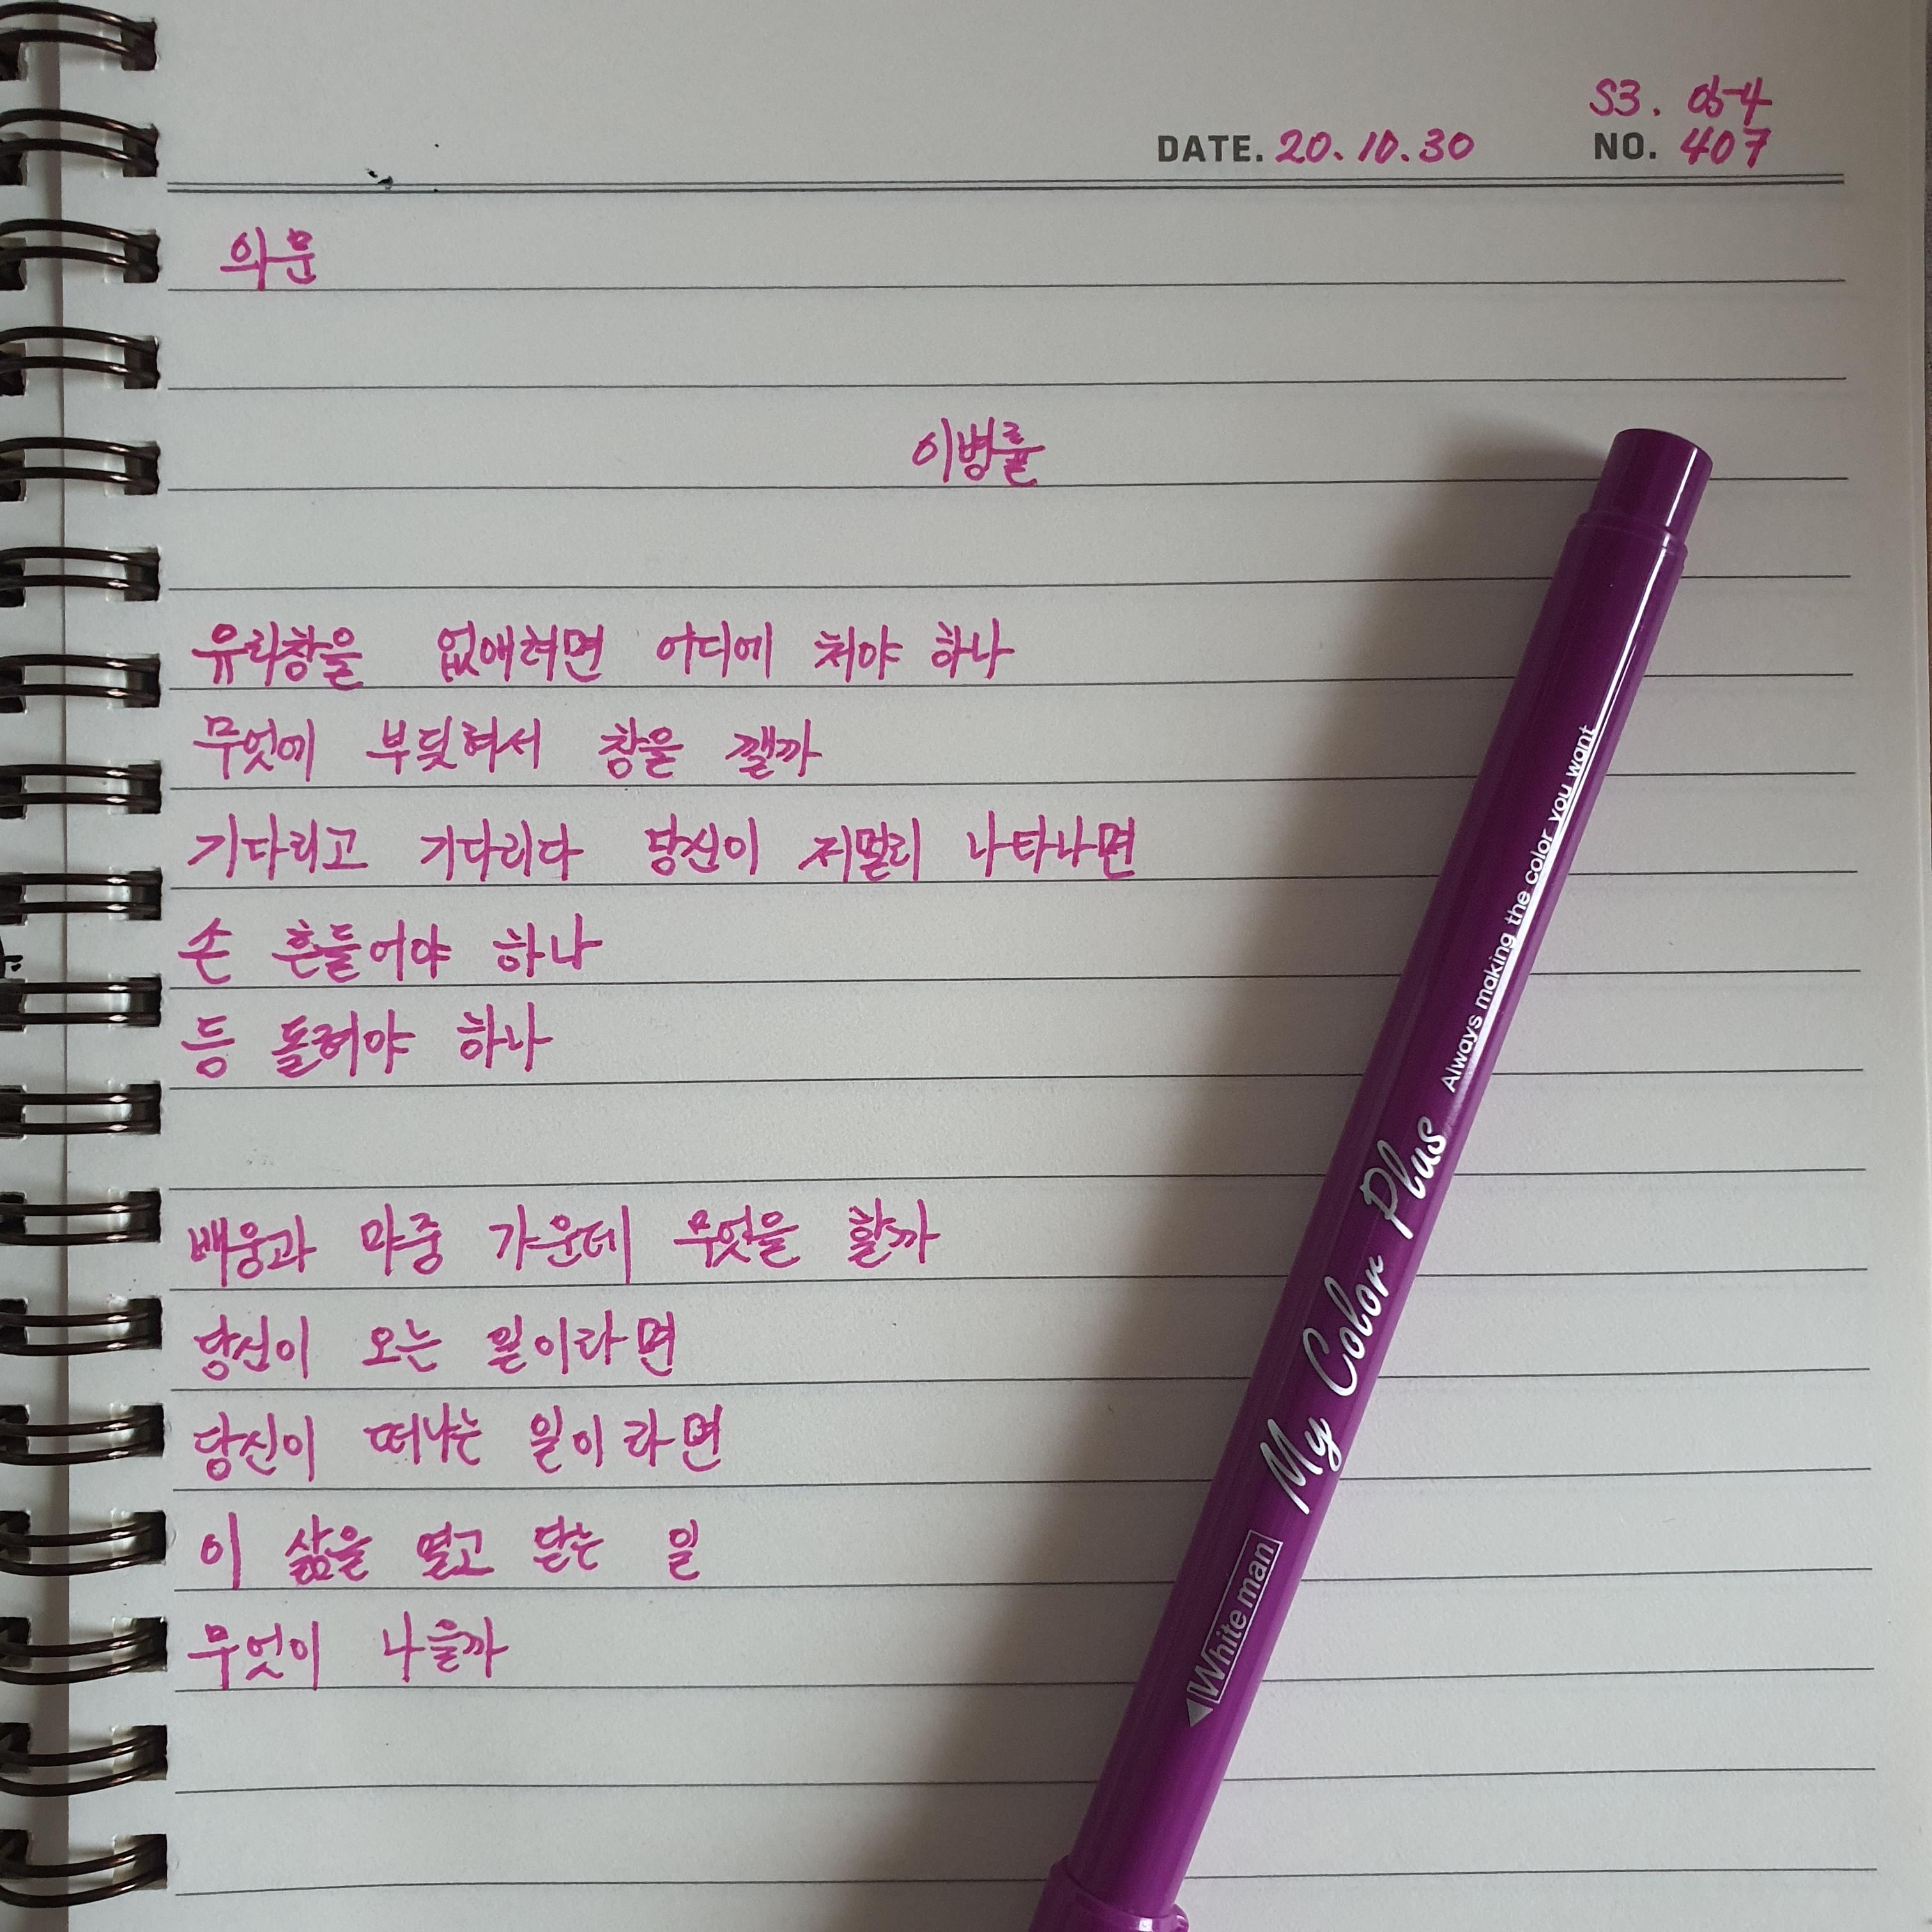 S3. 05-4
DATE. 20.10.30 NO. 407
의문
이병률
유리창을 없애려면 어디에 쳐야 하나
무엇에 부딪혀서 창을 깰까
기다리고 기다리다 당신이 저멀리 나타나면
손 흔들어야 하나
등 돌려야 하나
배웅과 마중 가운데 무엇을 할까
당신이 오는 일이라면
당신이 떠나는 일이라면
이 삶을 열고 닫는 일
무엇이 나을까
White man My Color Plus Always making the color you want